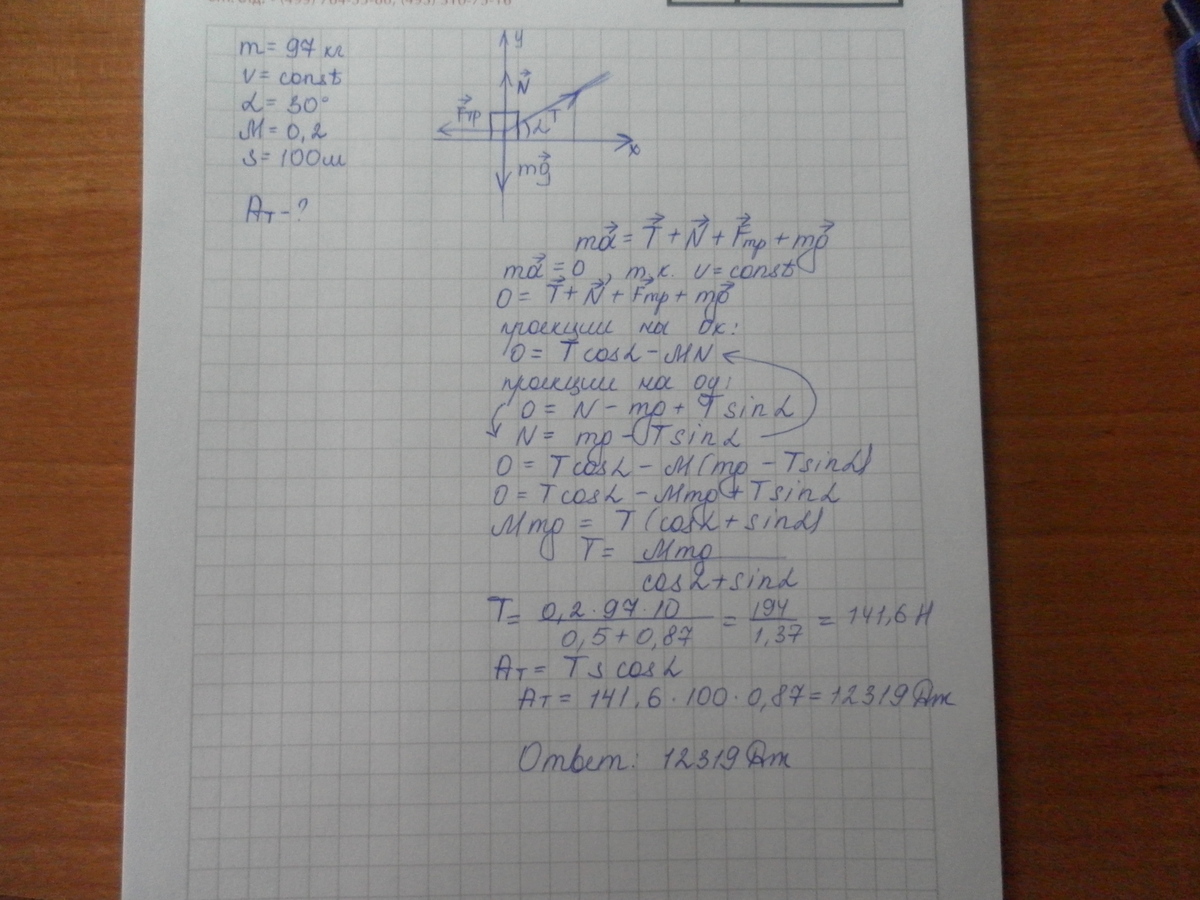 m = 97 кг
v = const
α = 30°
μ = 0,2
s = 100м
Aт - ?
y
N
Fтр
T
α
x
mg
ma = T + N + Fтр + mg
ma = 0, т.к. v = const
0 = T + N + Fтр + mg
проекции на ox:
0 = T cosα - μN
проекции на oy:
0 = N - mg + T sinα
N = mg - T sinα
0 = T cosα - μ(mg - T sinα)
0 = T cosα - μmg + T sinα
μmg = T (cosα + sinα)
T = μmg / cosα + sinα
T = 0,2·97·10 / 0,5 + 0,87 = 194 / 1,37 = 141,6 Н
Aт = T s cosα
Aт = 141,6 · 100 · 0,87 = 12319 Дж
Ответ: 12319 Дж